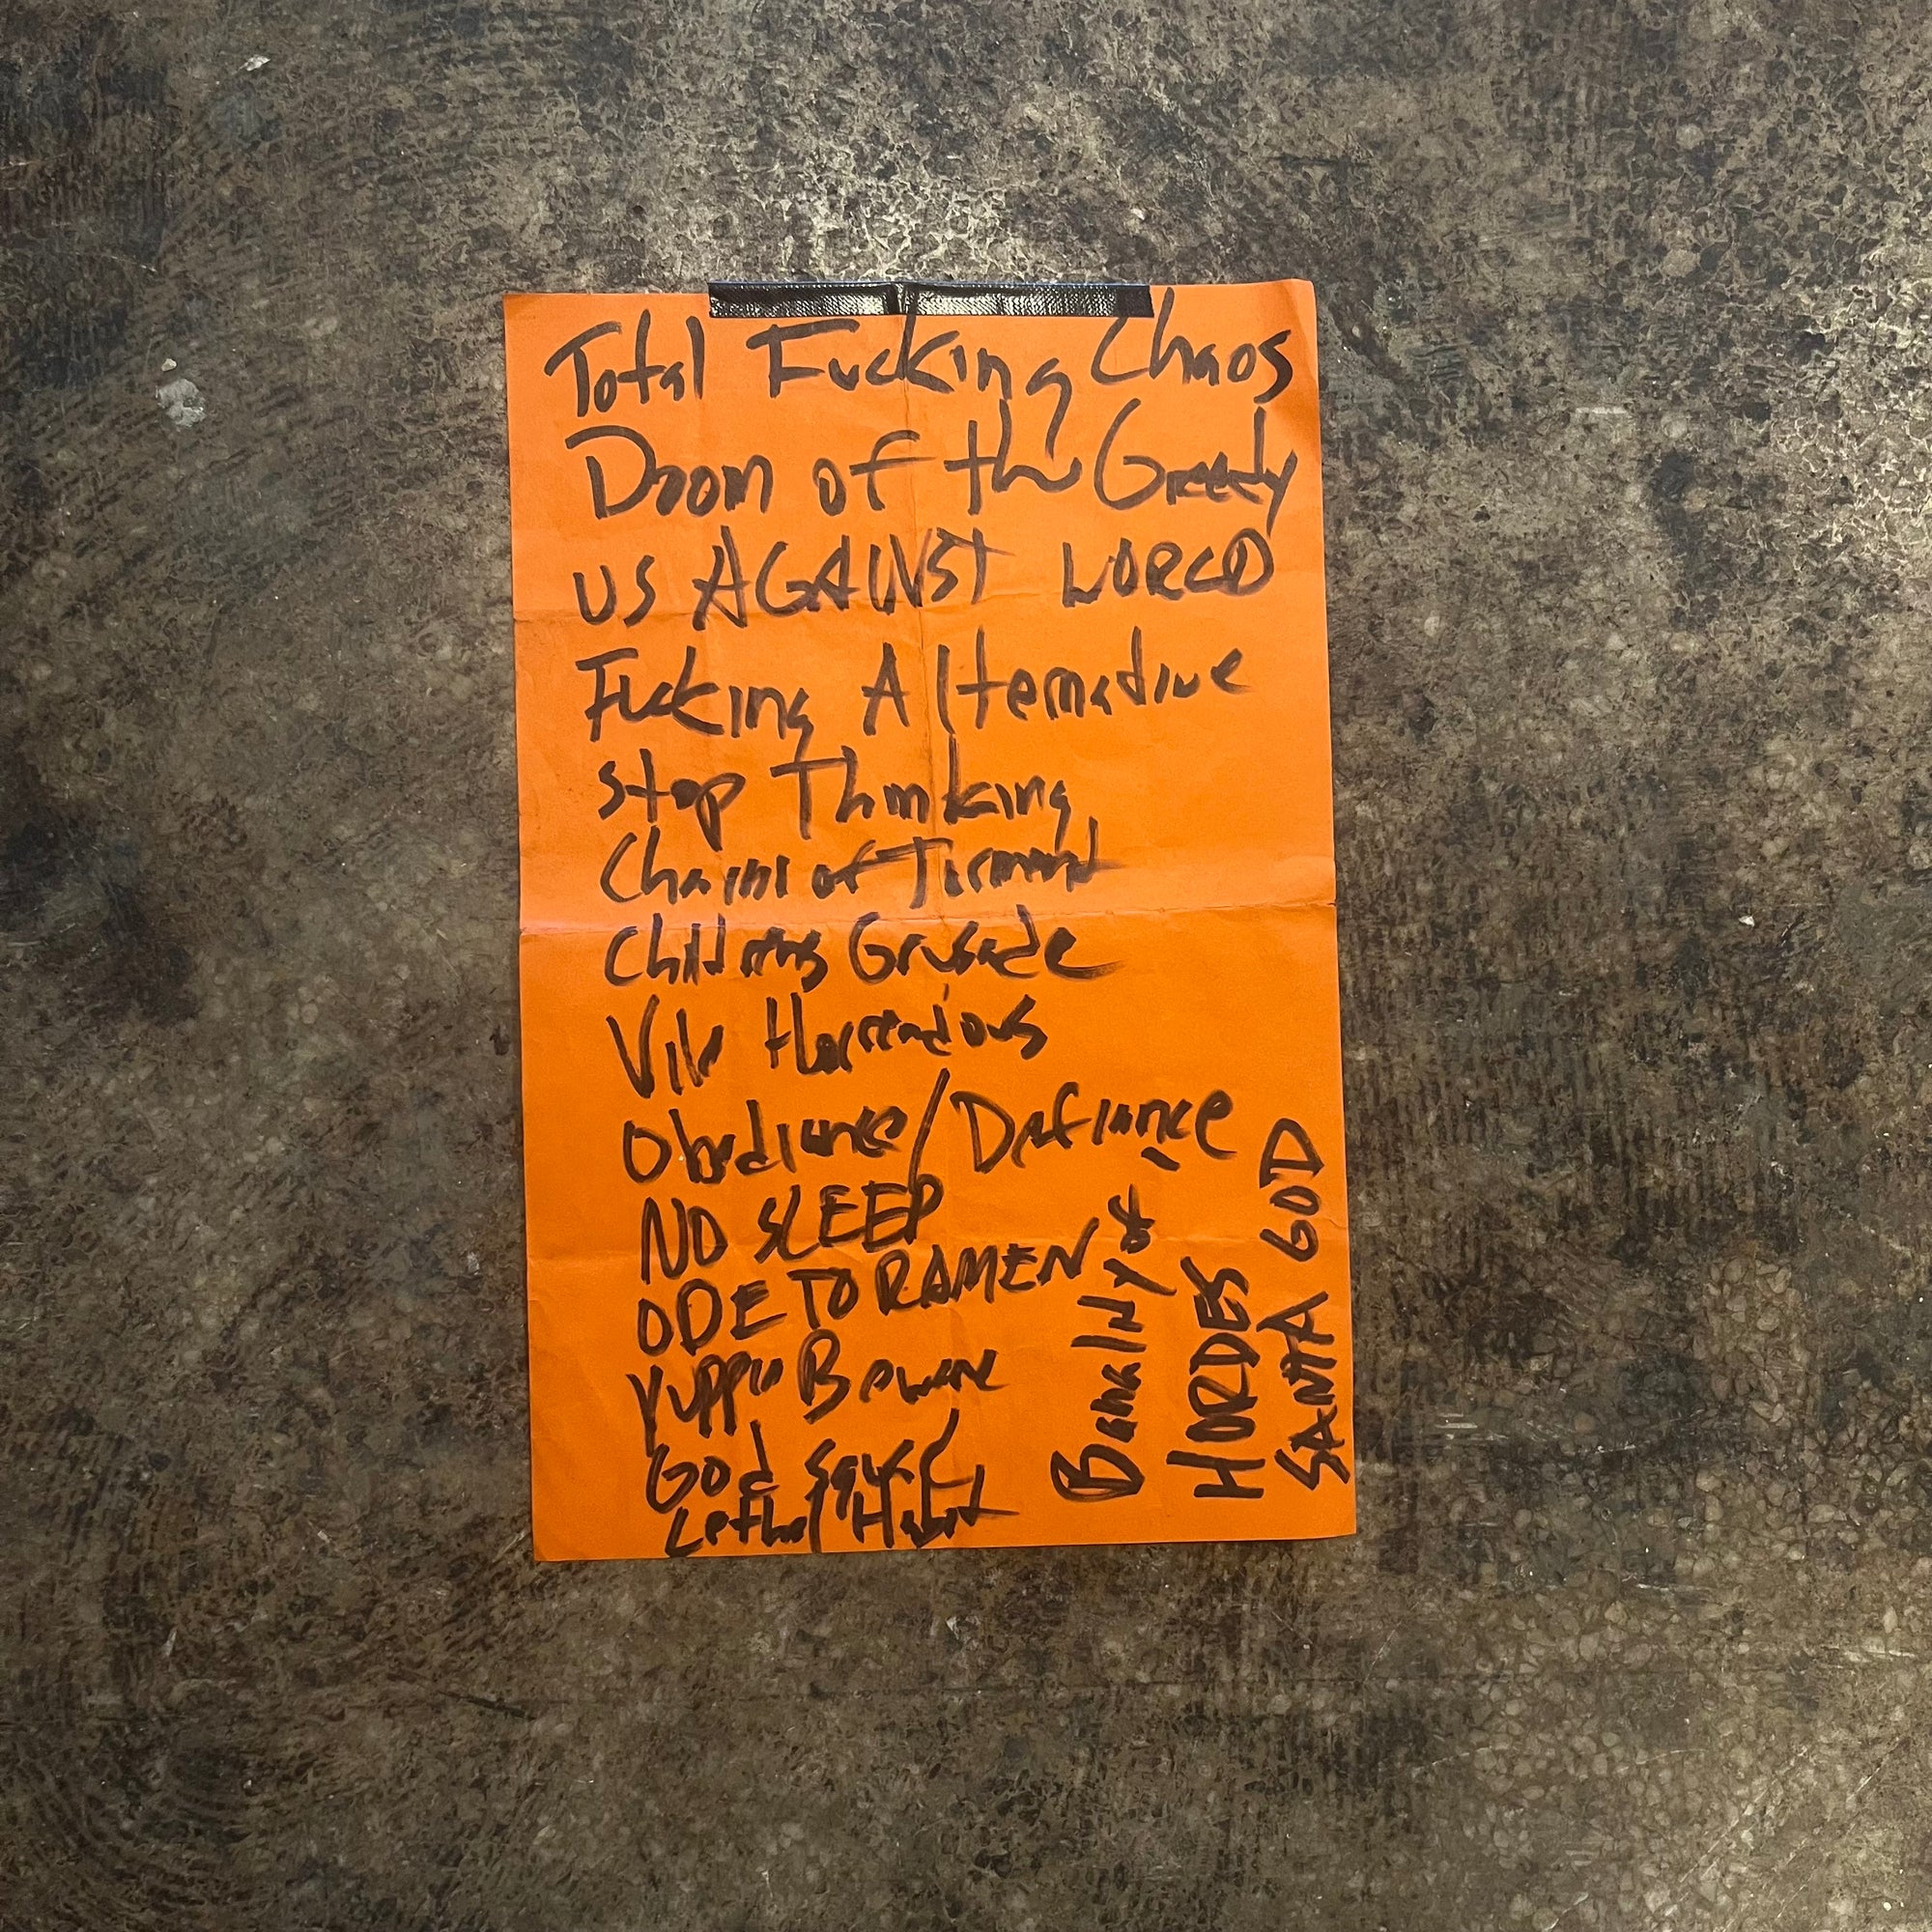 Total Fucking Chaos
Doom of the Greedy
US AGAINST WORLD
Fucking Alternative
Stop Thinking
Charm of Torment
Childrens Crusade
Vile Horrendous
Obedience/Defiance
NO SLEEP
ODE TO RAMEN
Yuppie Beware
God Squad
Lethal Habit
Banality of
HORDES
SANTA GOD